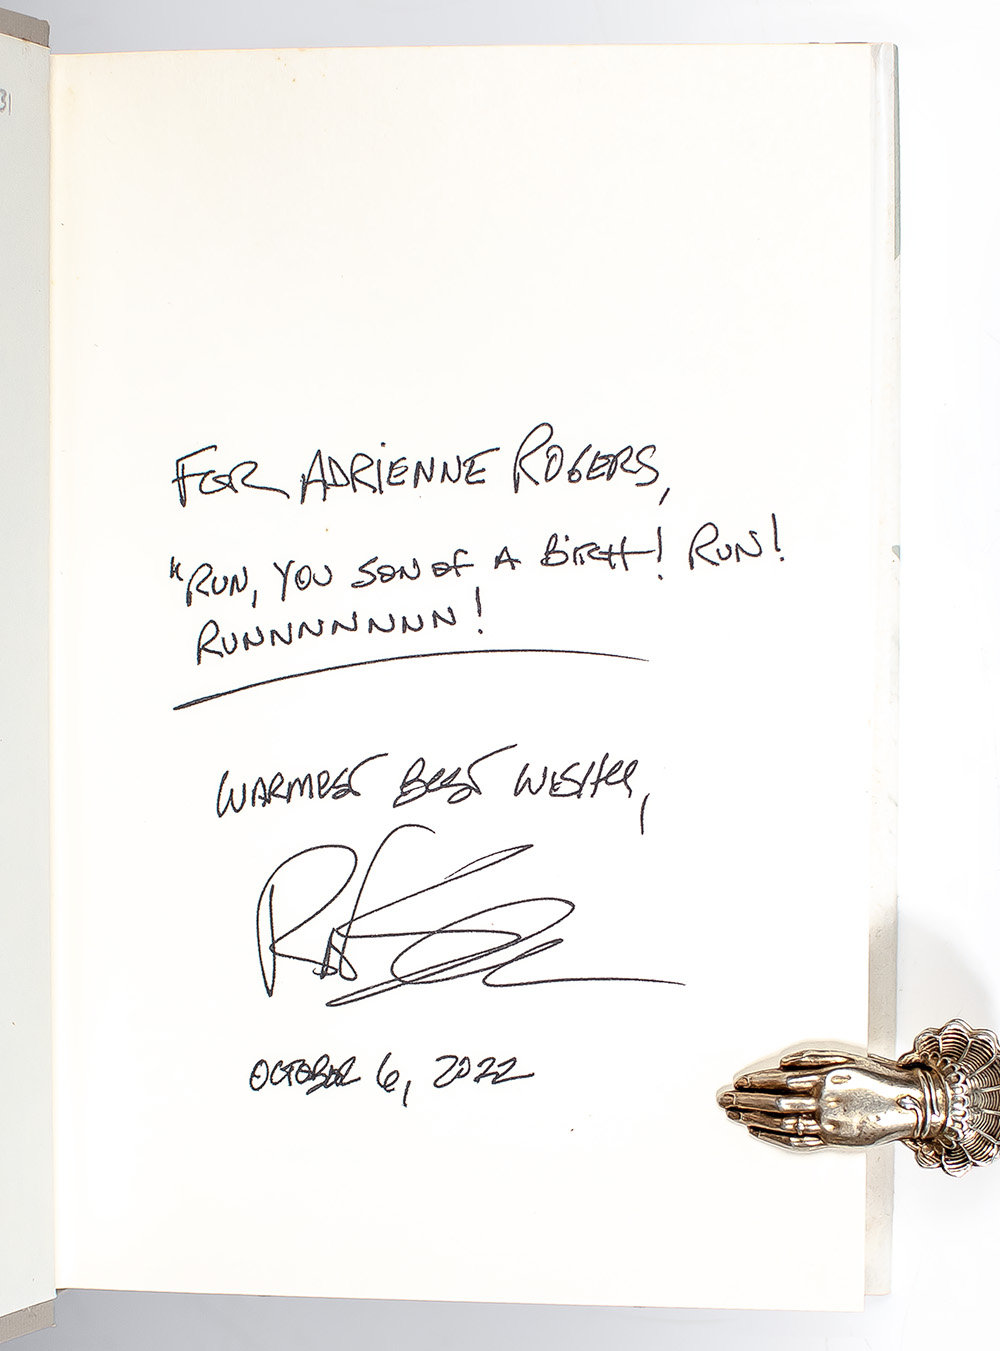 For Adrienne Rogers,
"Run, you son of a bitch! Run!
Runnnnnnnn!
Warmest best wishes,
October 6, 2022